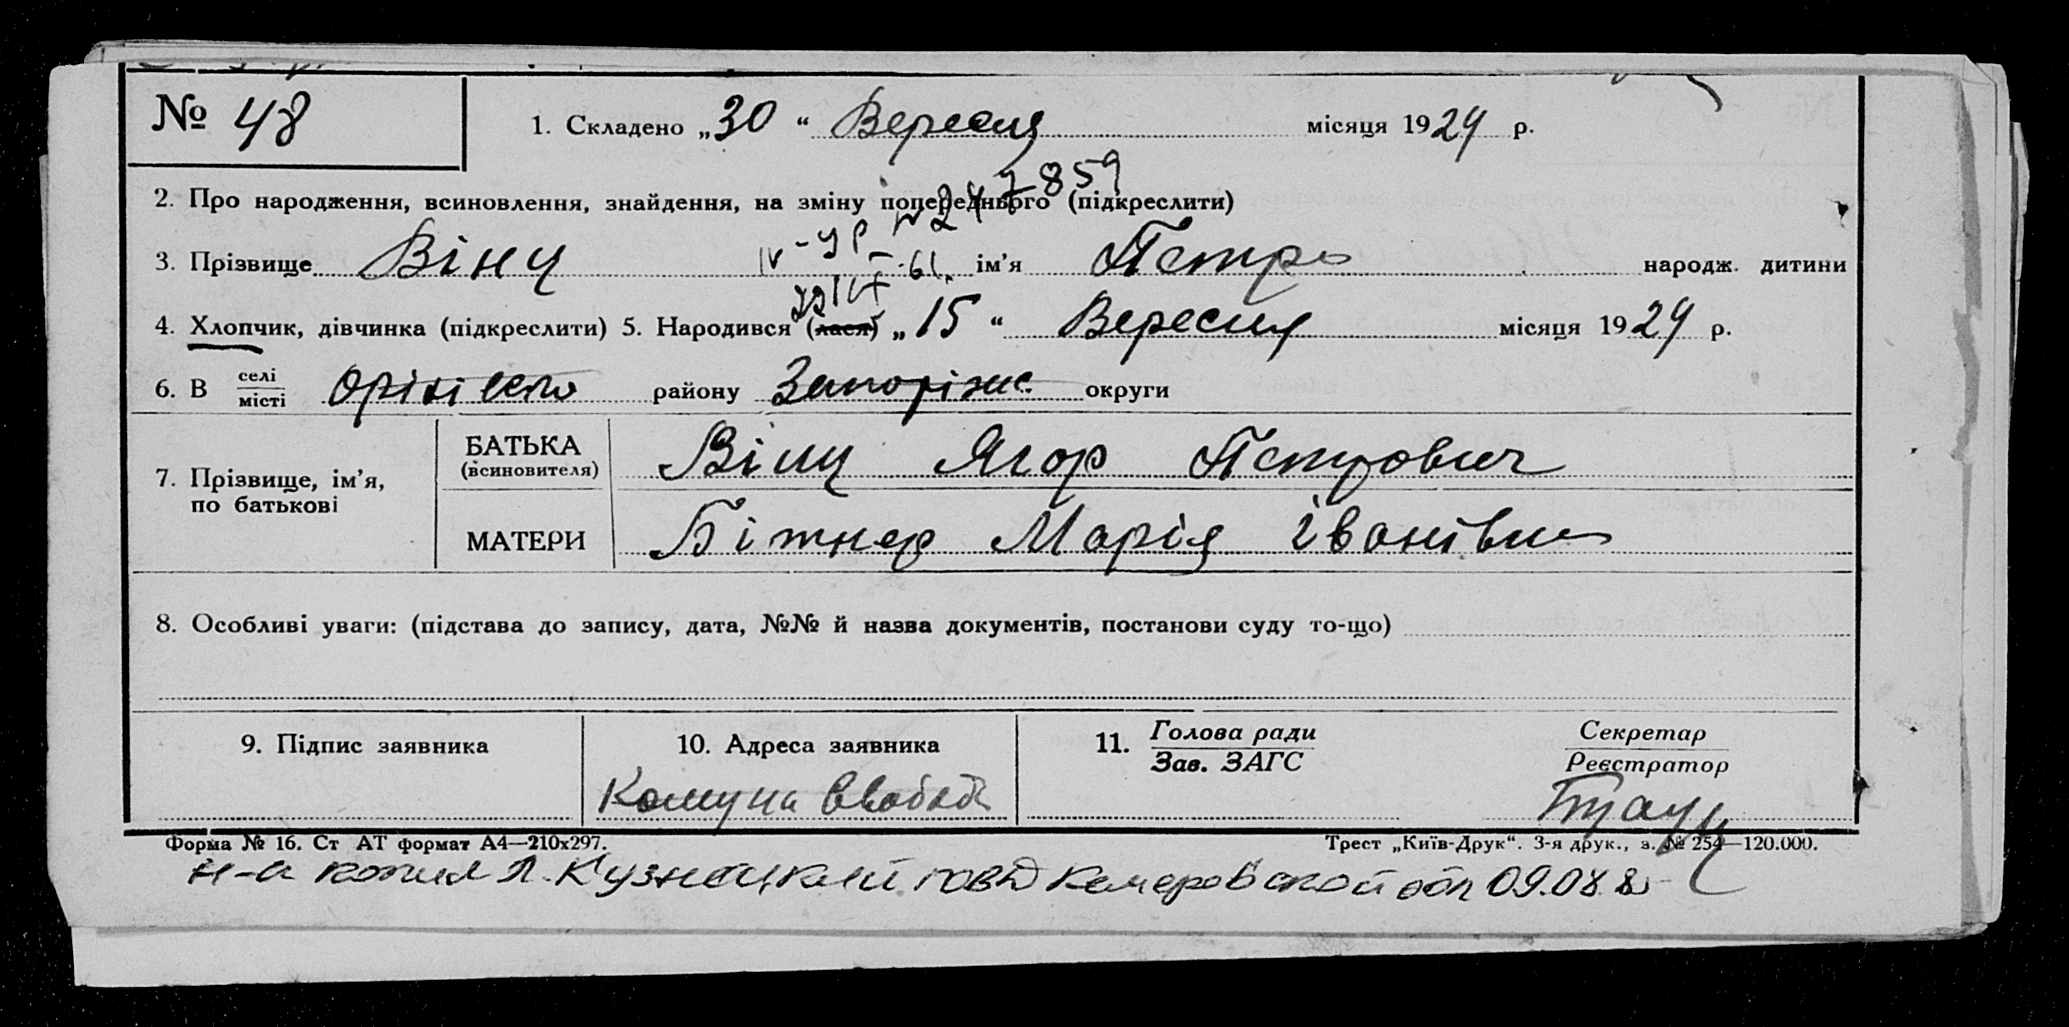 № 48
1. Складено „30“ Вересня місяця 1924 р.
2. Про народження, всиновлення, знайдення, на зміну попереднього (підкреслити)
3. Прізвище Вінц ім'я Петро народж. дитини
4. Хлопчик, дівчинка (підкреслити) 5. Народився (лася) „15“ Вересня місяця 1924 р.
6. В селі місті району Запоріжс. округи
7. Прізвище, ім'я, по батькові
БАТЬКА (всиновителя) Вінц Ягор Петрович
МАТЕРИ Бітнер Марія Іванівна
8. Особливі уваги: (підстава до запису, дата, №№ й назва документів, постанови суду то-що)
9. Підпис заявника
10. Адреса заявника
Комуна
11. Голова ради Зав. ЗАГС
Секретар Реєстратор
Форма № 16. Ст АТ формат А4—210х297.
Трест „Київ-Друк“. 3-я друк., з. № 254—120.000.
Кузнецкий ГОВД Кемеровской обл 09.08